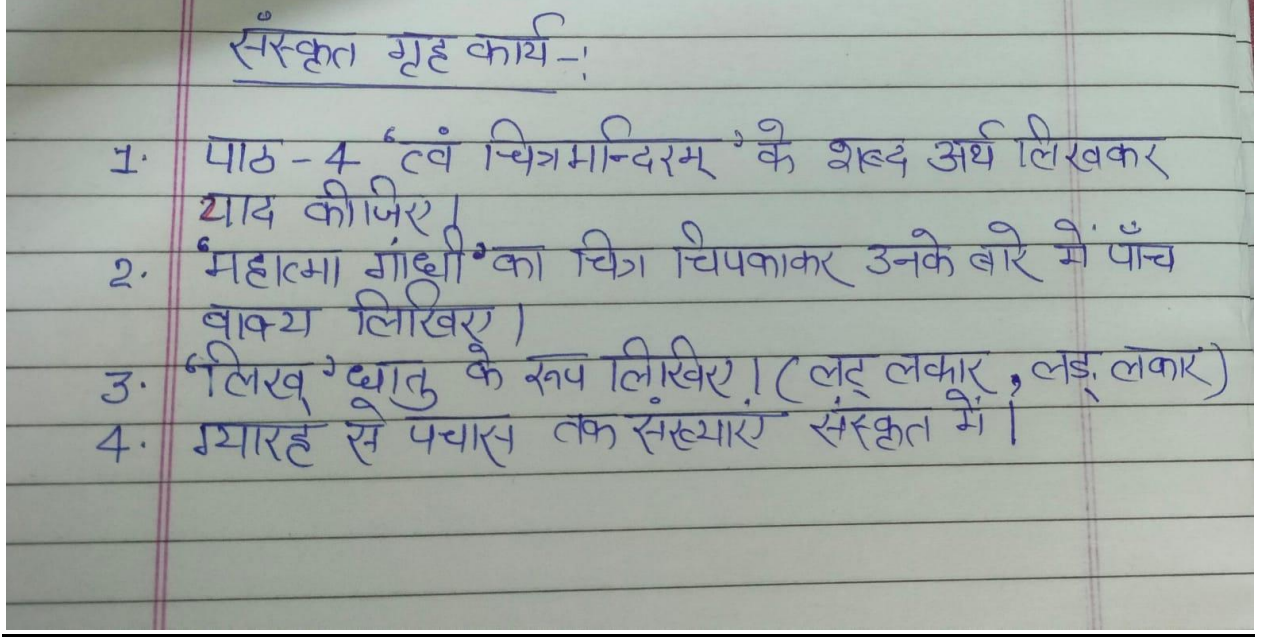 संस्कृत गृह कार्य-:
1. पाठ - 4 'त्वं चित्रमन्दिरम्' के शब्द अर्थ लिखकर
याद कीजिए।
2. 'महात्मा गांधी' का चित्र चिपकाकर उनके बारे में पाँच
वाक्य लिखिए।
3. 'लिख्' धातु के रूप लिखिए। (लट् लकार, लङ् लकार)
4. ग्यारह से पचास तक संख्याएं संस्कृत में।